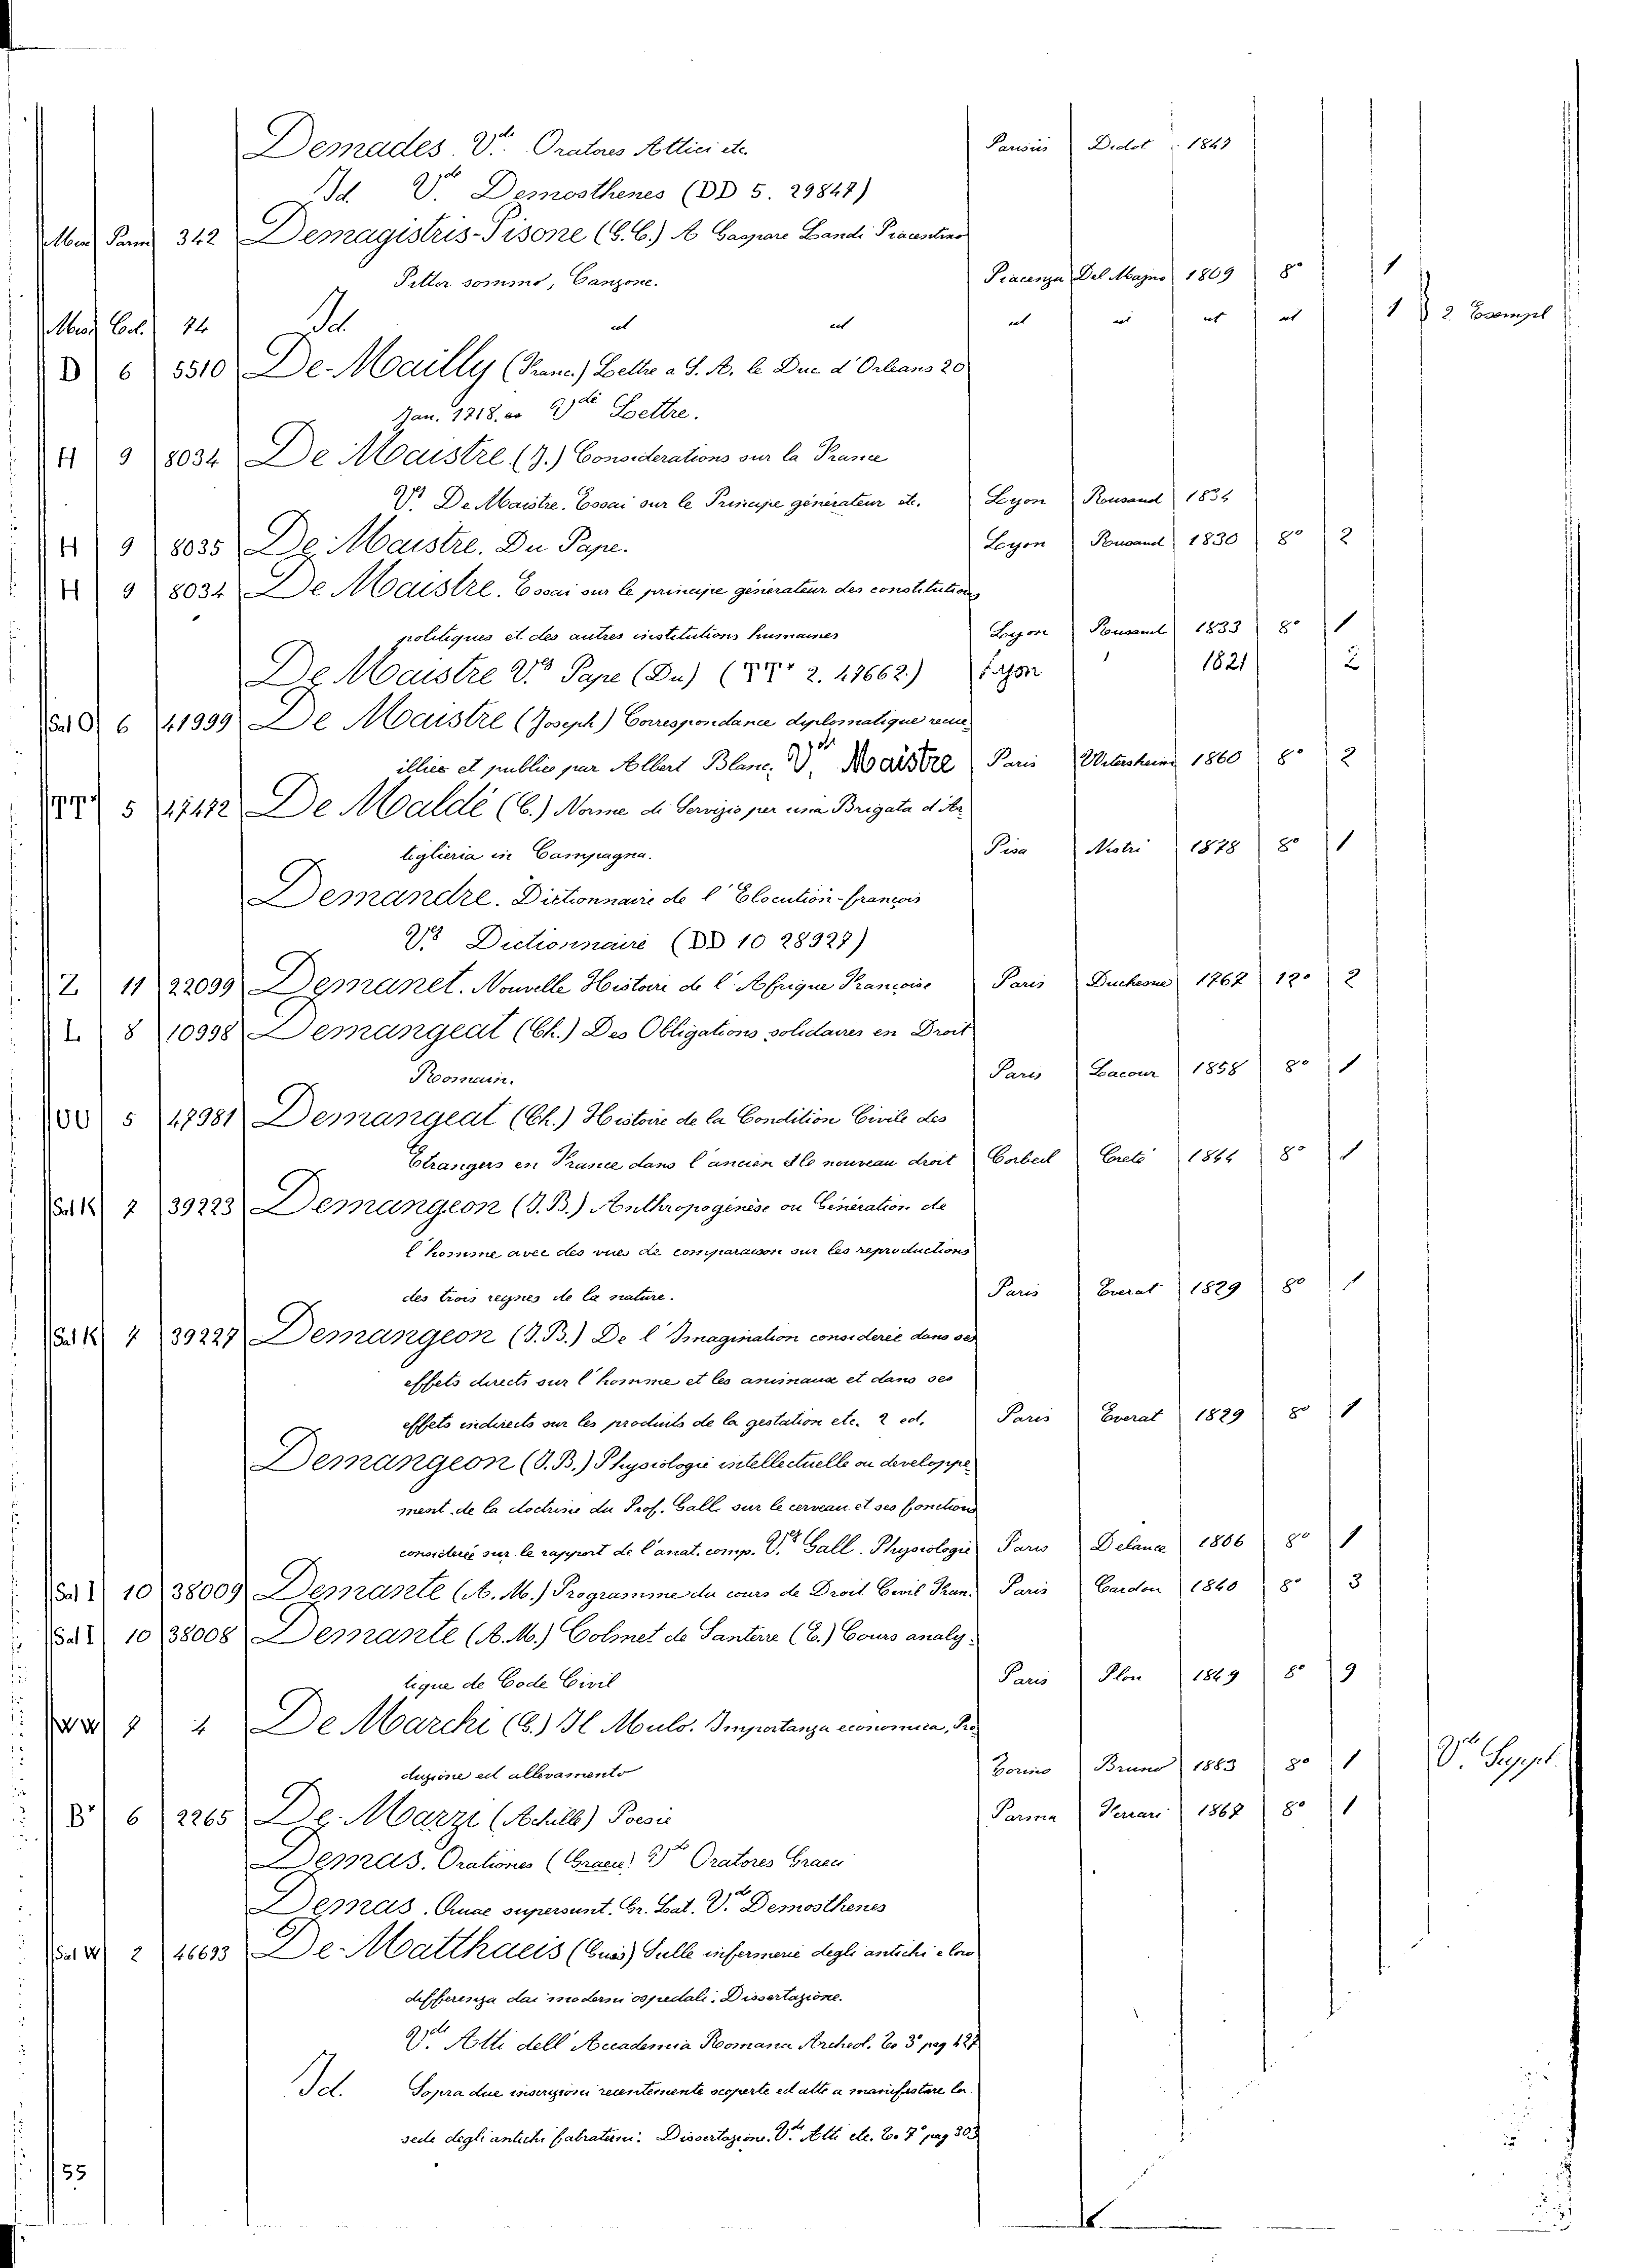 Demades. V.de Oratores Attici etc. Parisiis Didot 1849
Id. V.de Demosthenes (DD 5. 29847)
Mes. Parm 342 Demagistris-Pisone (G. C.) A Gaspare Landi Piacentino
Pittor sommo, Canzone. Piacenza Del Majno 1809 8° 1
Col. 24 Id. id id id id id id 1 2. Esempl
D 6 5510 De-Mailly (Franc.) Lettre a S. A. le Duc d'Orleans 20
Jan. 1718. V.de Lettre.
H 9 8034 De Maistre (J.) Considerations sur la France
V.e De Maistre. Essai sur le Principe générateur etc. Lyon Rousand 1834
H 9 8035 De Maistre. Du Pape. Lyon Rousand 1830 8° 2
H 9 8034 De Maistre. Essai sur le principe générateur des constitutions
politiques et des autres institutions humaines Lyon Rousand 1833 8° 1
De Maistre V.de Pape (Du) ( 2. 47662.) Lyon 1821 2
Sal O 6 41999 De Maistre (Joseph) Correspondance diplomatique recue
illies et publies par Albert Blanc. V.de Maistre Paris Witersheim 1860 8° 2
5 47472 De Maldè (C.) Norme di Servizio per una Brigata d'Ar
tiglieria in Campagna. Pisa Nistri 1878 8° 1
Demandre. Dictionnaire de l'Elocution-françois
V.de Dictionnaire (DD 10 28927)
Z 11 22099 Demanet. Nouvelle Histoire de l'Afrique Françoise Paris Duchesne 1767 12° 2
L 8 10998 Demangeat (Ch.) Des Obligations solidaires en Droit
Romain. Paris Lacour 1858 8° 1
OO 5 47981 Demangeat (Ch.) Histoire de la Condition Civile des
Etrangers en France dans l'ancien et le nouveau droit Corbeil Creté 1844 8° 1
Sal K 7 39223 Demangeon (J. B.) Anthropogénèse ou Génération de
l'homme avec des vues de comparaison sur les reproductions
des trois regnes de la nature. Paris Everat 1829 8° 1
Sal K 7 39227 Demangeon (J. B.) De l'Imagination considerée dans ses
effets directs sur l'homme et les animaux et dans ses
effets indirects sur les produits de la gestation etc. 2 ed. Paris Everat 1829 8° 1
Demangeon (J. B.) Physiologie intellectuelle ou developpe
ment de la doctrine du Prof. Gall sur le cerveau et ses fonctions
considerée sur le rapport de l'anat. comp. V.de Gall. Physiologie Paris Delance 1806 8° 1
Sal I 10 38009 Demante (A. M.) Programme du cours de Droit Civil Fran. Paris Gardon 1840 8° 3
Sal I 10 38008 Demante (A. M.) Colmet de Santerre (E.) Cours analy
tique de Code Civil Paris Plon 1849 8° 9
7 4 De Marchi (E.) Il Mulo. Importanza economica, Pro
duzione ed allevamento Torino Bruno 1883 8° 1 V.de Suppl.
B" 6 2265 De-Marzi (Achille) Poesie Parma Ferrari 1867 8° 1
Demas. Orationes (Graece) V.de Oratores Graeci
Demas. Quae supersunt. Gr. Lat. V.de Demosthenes
Sal W 2 46693 De-Matthaeis (Gius) Sulle infermerie degli antichi e loro
differenza dai moderni ospedali. Dissertazione.
V.de Atti dell'Accademia Romana Archeol. To 3° pag 427
Id. Sopra due inscrizioni recentemente scoperte ed atte a manifestare la
sede degli antichi fabraterni. Dissertazione. V.de Atti etc. To. 7° pag 303
55